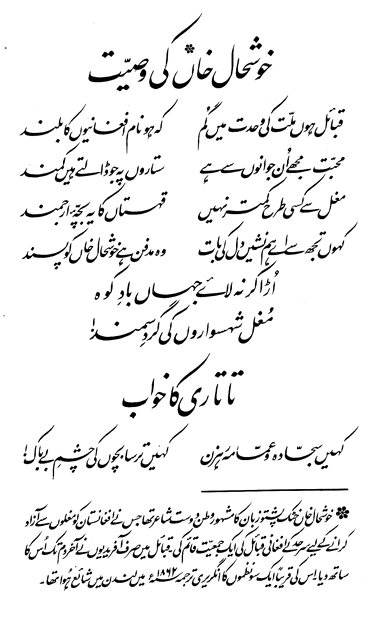 خوشحال خاں* کی وصیّت
قبائل ہوں ملّت کی وحدت میں گُم کہ ہو نام افغانیوں کا بلند
محبّت مجھے اُن جوانوں سے ہے ستاروں پہ جو ڈالتے ہیں کمند
مغل سے کسی طرح کمتر نہیں قہستاں کا یہ بچّۂ ارجمند
کہوں تجھ سے اے ہم نشیں دل کی بات وہ مدفن ہے خوشحال خاں کو پسند
اُڑا کر نہ لائے جہاں بادِ کوہ
مُغل شہسواروں کی گردِ سمند!
تاتاری کا خواب
کہیں سجّادہ و عمّامہ رہزن کہیں ترسا بچوں کی چشمِ بے باک!
* خوشحال خان خٹک پشتو زبان کا مشہور وطن دوست شاعر تھا جس نے افغانستان کو مغلوں سے آزاد
کرانے کے لیے سرحد کے افغانی قبائل کی ایک جمعیت قائم کی۔ قبائل میں صرف آفریدیوں نے آخر دم تک اُس کا
ساتھ دیا۔ اس کی قریباً ایک سو نظموں کا انگریزی ترجمہ ۱۸۶۲ء میں لندن میں شائع ہُوا تھا۔